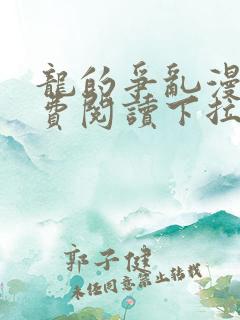 龍的爭亂漫
費閱讀下拉
郭子健
未經同意禁止轉載